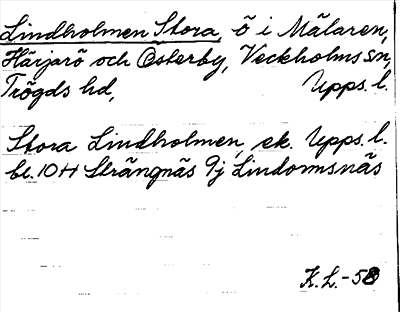 Lindholmen Stora, ö i Mälaren,
Härjarö och Österby, Veckholms sn,
Trögds hd, Upps. l.
Stora Lindholmen, ek. Upps. l.
bl. 10H Strängnäs 9j Lindormsnäs
K.L. -58